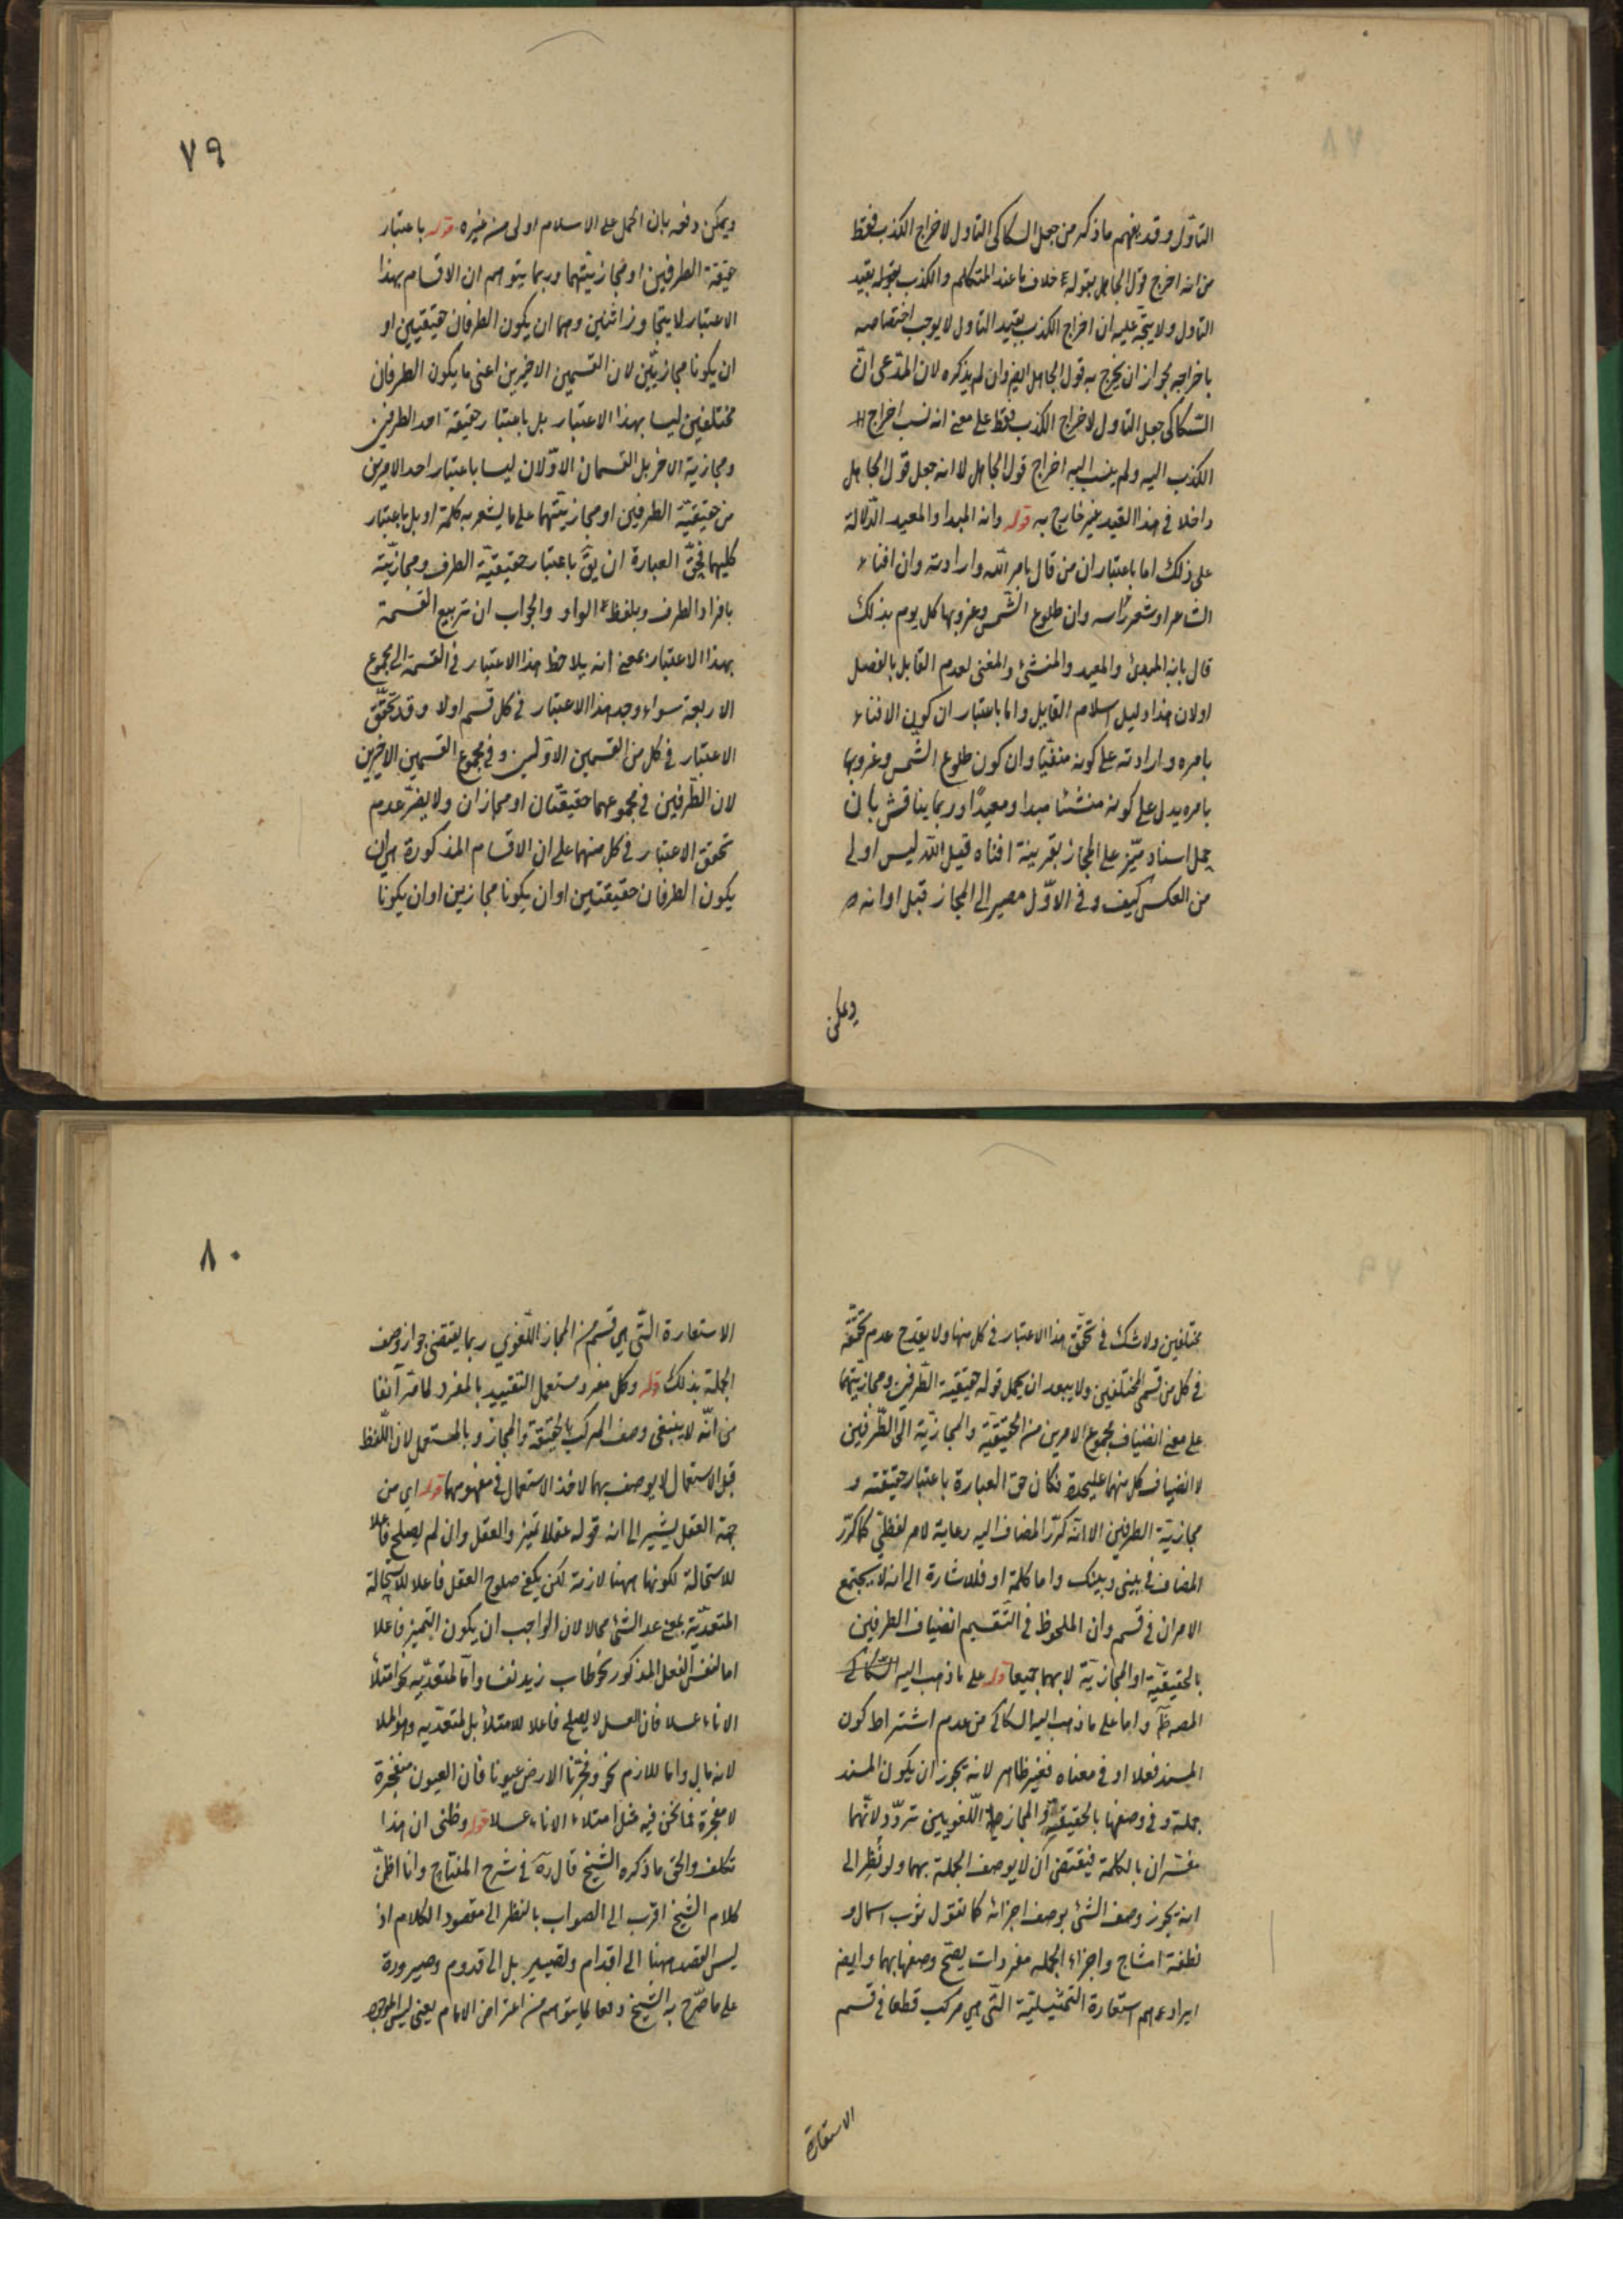 التاول وقد يفهم ما ذكره من جعل السكاكى التاول لاخراج الكذب فقط
من انه اخرج قول الجاهل بقوله خلاف ما عند المتكلم والكذب بقوله بقيد
التاول ولا يتجه عليه ان اخراج الكذب بقيد التاول لا يوجب اختصاصه
باخراجه لجواز ان يخرج به قول الجاهل ايضا وان لم يذكره لان المدعى ان
السكاكى جعل التاول لاخراج الكذب فقط على معنى انه نسب اخراج
الكذب اليه ولم ينسب اليه اخراج قول الجاهل لا انه جعل قول الجاهل
داخلا فى هذا القيد غير خارج به قوله وانه المبدا والمعيد الدلالة
على ذلك اما باعتبار ان من قال بامر الله وارادته وان افناء
الشاعر او شعر راسه وان طلوع الشمس وغروبها كل يوم بذلك
قال بانه المبدئ والمعيد والمنشئ والمفنى لعدم القايل بالفصل
اولان هذا دليل اسلام القايل واما باعتبار ان كون الافناء
بامره وارادته على كونه مفنيا وان كون طلوع الشمس وغروبها
بامره يدل على كونه منشئا مبدا ومعيدا وربما يناقش بان
حمل اسناد ميز على المجاز بقرينة افناه قيل الله ليس اولى
من العكس كيف وفى الاول مصير الى المجاز قبل اوانه
ويمكن
٧٩
ويمكن دفعه بان الحمل على الاسلام اولى من غيره قوله باعتبار
حقيقة الطرفين او مجازيتهما وربما يتوهم ان الاقسام بهذا
الاعتبار لا يتجاوز اثنين وهما ان يكون الطرفان حقيقيين او
ان يكونا مجازيين لان القسمين الاخيرين اعنى ما يكون الطرفان
مختلفين ليسا بهذا الاعتبار بل باعتبار حقيقة احد الطرفين
ومجازية الاخر بل القسمان الاولان ليسا باعتبار احد الامرين
من حقيقية الطرفين او مجازيتهما على ما يشعر به كلمة او بل باعتبار
كليهما فحق العبارة ان يق باعتبار حقيقية الطرف ومجازيته
بافراد الطرف وبلفظ الواو والجواب ان تربيع القسمة
بهذا الاعتبار بمعنى انه يلاحظ هذا الاعتبار فى القسمة الى مجموع
الاربعة سواء وجد هذا الاعتبار فى كل قسم اولا وقد تحقق
الاعتبار فى كل من القسمين الاولين وفى مجموع القسمين الاخيرين
لان الطرفين فى مجموعهما حقيقتان او مجازان ولا يضر عدم
تحقق الاعتبار فى كل منهما على ان الاقسام المذكورة هى ان
يكون الطرفان حقيقتين او ان يكونا مجازين او ان يكونا
مختلفين ولا شك فى تحقق هذا الاعتبار فى كل منها ولا يقدح عدم تحققه
فى كل من قسمى المختلفين ولا يبعد ان يحمل قوله حقيقية الطرفين ومجازيتهما
على معنى انضياف مجموع الامرين من الحقيقية والمجازية الى الطرفين
لا انضياف كل منهما عليحدة فكان حق العبارة باعتبار حقيقته و
مجازية الطرفين الا انه كرر المضاف اليه رعاية لامر لفظى كما كرر
المضاف فى بينى وبينك واما كلمة او فللاشارة الى انه لا يجتمع
الامران فى قسم وان الملحوظ فى التقسيم انضياف الطرفين
بالحقيقية او المجازية لا بهما جميعا قوله على ما ذهب اليه السكاكى
المصه ظم واما على ما ذهب اليه السكاكى من عدم اشتراط كون
المسند فعلا او فى معناه فغير ظاهر لانه يجوز ان يكون المسند
جملة وفى وصفها بالحقيقة والمجاز اللغويين تردد لانهما
مفسران بالكلمة فيقتضى ان لا يوصف الجملة بهما ولو نظر الى
انه يجوز وصف الشئ بوصف اجزائه كما تقول ثوب اسمال و
نطفة امشاج واجزاء الجملة مفردات يصح وصفها بهما وايضا
ايرادهم استعارة التمثيلية التى هى مركب قطعا فى قسم
الاستعارة
٨٠
الاستعارة التى هى قسم من المجاز اللغوي ربما يقتضى جواز وصف
الجملة بذلك قوله وكل مفرد مستعمل التقييد بالمفرد لما مر آنفا
من انه لا ينبغى وصف المركب بالحقيقة والمجاز وبالمستعمل لان اللفظ
قبل الاستعمال لا يوصف بهما لاخذ الاستعمال فى مفهومهما قوله اى من
جهة العقل يشير الى ان قوله عقلا تميز والعقل وان لم يصلح فاعلا
للاستحالة لكونها ههنا لازمة لكن يكفى صلوح العقل فاعلا للاستحالة
المتعدية بمعنى عد الشئ محالا لان الواجب ان يكون التميز فاعلا
اما لنفس الفعل المذكور نحو طاب زيد نفسا واما لمتعديه نحو امتلأ
الاناء عسلا فان العسل لا يصلح فاعلا للامتلأ بل لمتعديه وهو الملا
لانه مال واما للازم نحو وفجرنا الارض عيونا فان العيون منفجرة
لا مفجرة فما نحن فيه مثل امتلاء الاناء عسلا قوله وظنى ان هذا
تكلف والحق ما ذكره الشيخ قال ره فى شرح المفتاح وانا اظن
كلام الشيخ اقرب الى الصواب بالنظر الى مقصود الكلام اذ
ليس القصد ههنا الى اقدام وتصيير بل الى قدوم وصيرورة
على ما صرح به الشيخ دفعا لما يتوهم من اعتراض الامام يعنى ليس الموجود